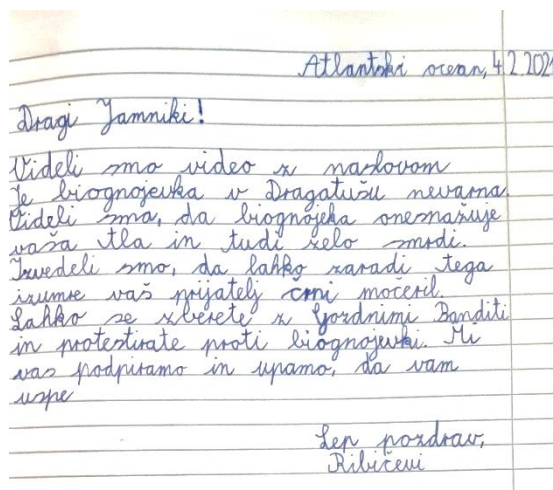 Atlantski ocean, 4.2.2021
Dragi Jamniki!
Videli smo video z naslovom
Je biognojevka v Dragatušu nevarna.
Videli sma, da biognojeka onesnažuje
vaša tla in tudi zelo smrdi.
Izvedeli smo, da lahko zaradi tega
izumre vaš prijatelj črni močeril.
Lahko se zberete z Gozdnimi Banditi
in protestirate proti biognojevki. Mi
vas podpiramo in upamo, da vam
uspe
Lep pozdrav,
Ribičevi